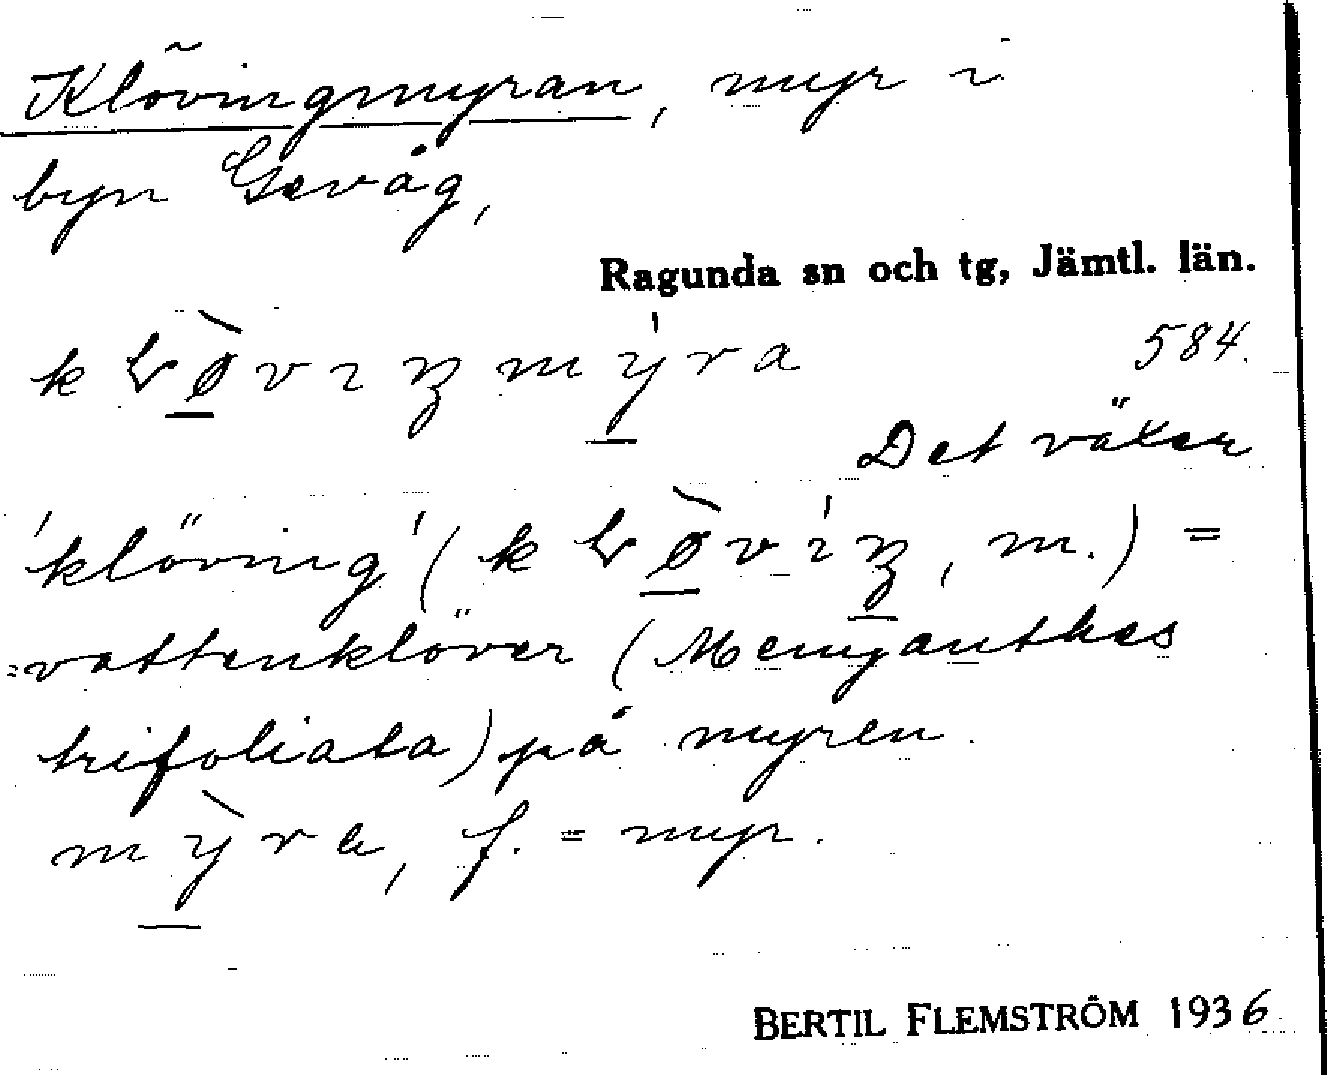 Klövingmyran, myr i
byn Gevåg,
Ragunda sn och tg, Jämtl. län.
584.
Det växer
'klöving' (
, m.) =
=vattenklöver (Menyanthes
trifoliata) på myren.
f. = myr.
BERTIL FLEMSTRÖM 1936